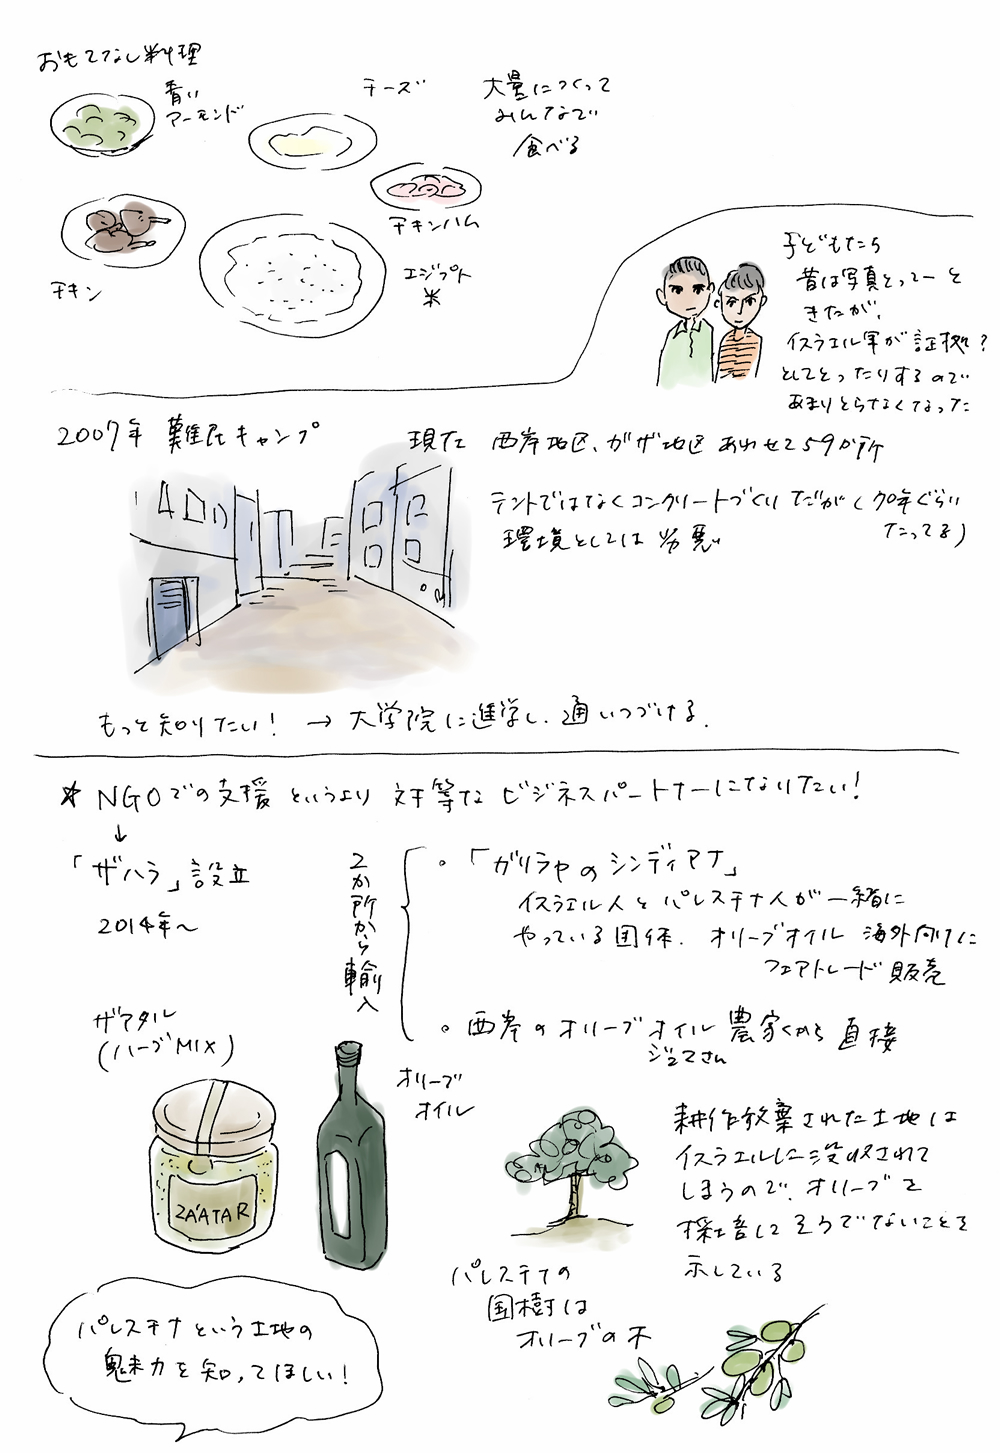 おもてなし料理
青い
アーモンド
チーズ
大量につくって
みんなで
食べる
チキンハム
チキン
エジプト
米
子どもたち
昔は写真とってーと
きたが、
イスラエル軍が証拠?
としてとったりするので
あまりとらなくなった
2007年 難民キャンプ
現在 西岸地区、ガザ地区 あわせて59か所
テントではなくコンクリートづくりだが(70年ぐらい
たってる)
環境としては劣悪
もっと知りたい! → 大学院に進学し、通いつづける。
* NGOでの支援というより 対等なビジネスパートナーになりたい!
↓
「ザハラ」設立
2014年~
2か所から輸入
・「ガリラヤのシンディアナ」
イスラエル人とパレスチナ人が一緒に
やっている団体. オリーブオイル 海外向けに
フェアトレード販売
・西岸のオリーブオイル農家から直接
ジュマさん
ザアタル
(ハーブMIX)
オリーブ
オイル
ZA'ATAR
耕作放棄された土地は
イスラエルに没収されて
しまうので、オリーブを
採培してそうでないことを
示している
パレスチナの
国樹は
オリーブの木
パレスチナという土地の
魅力を知ってほしい!